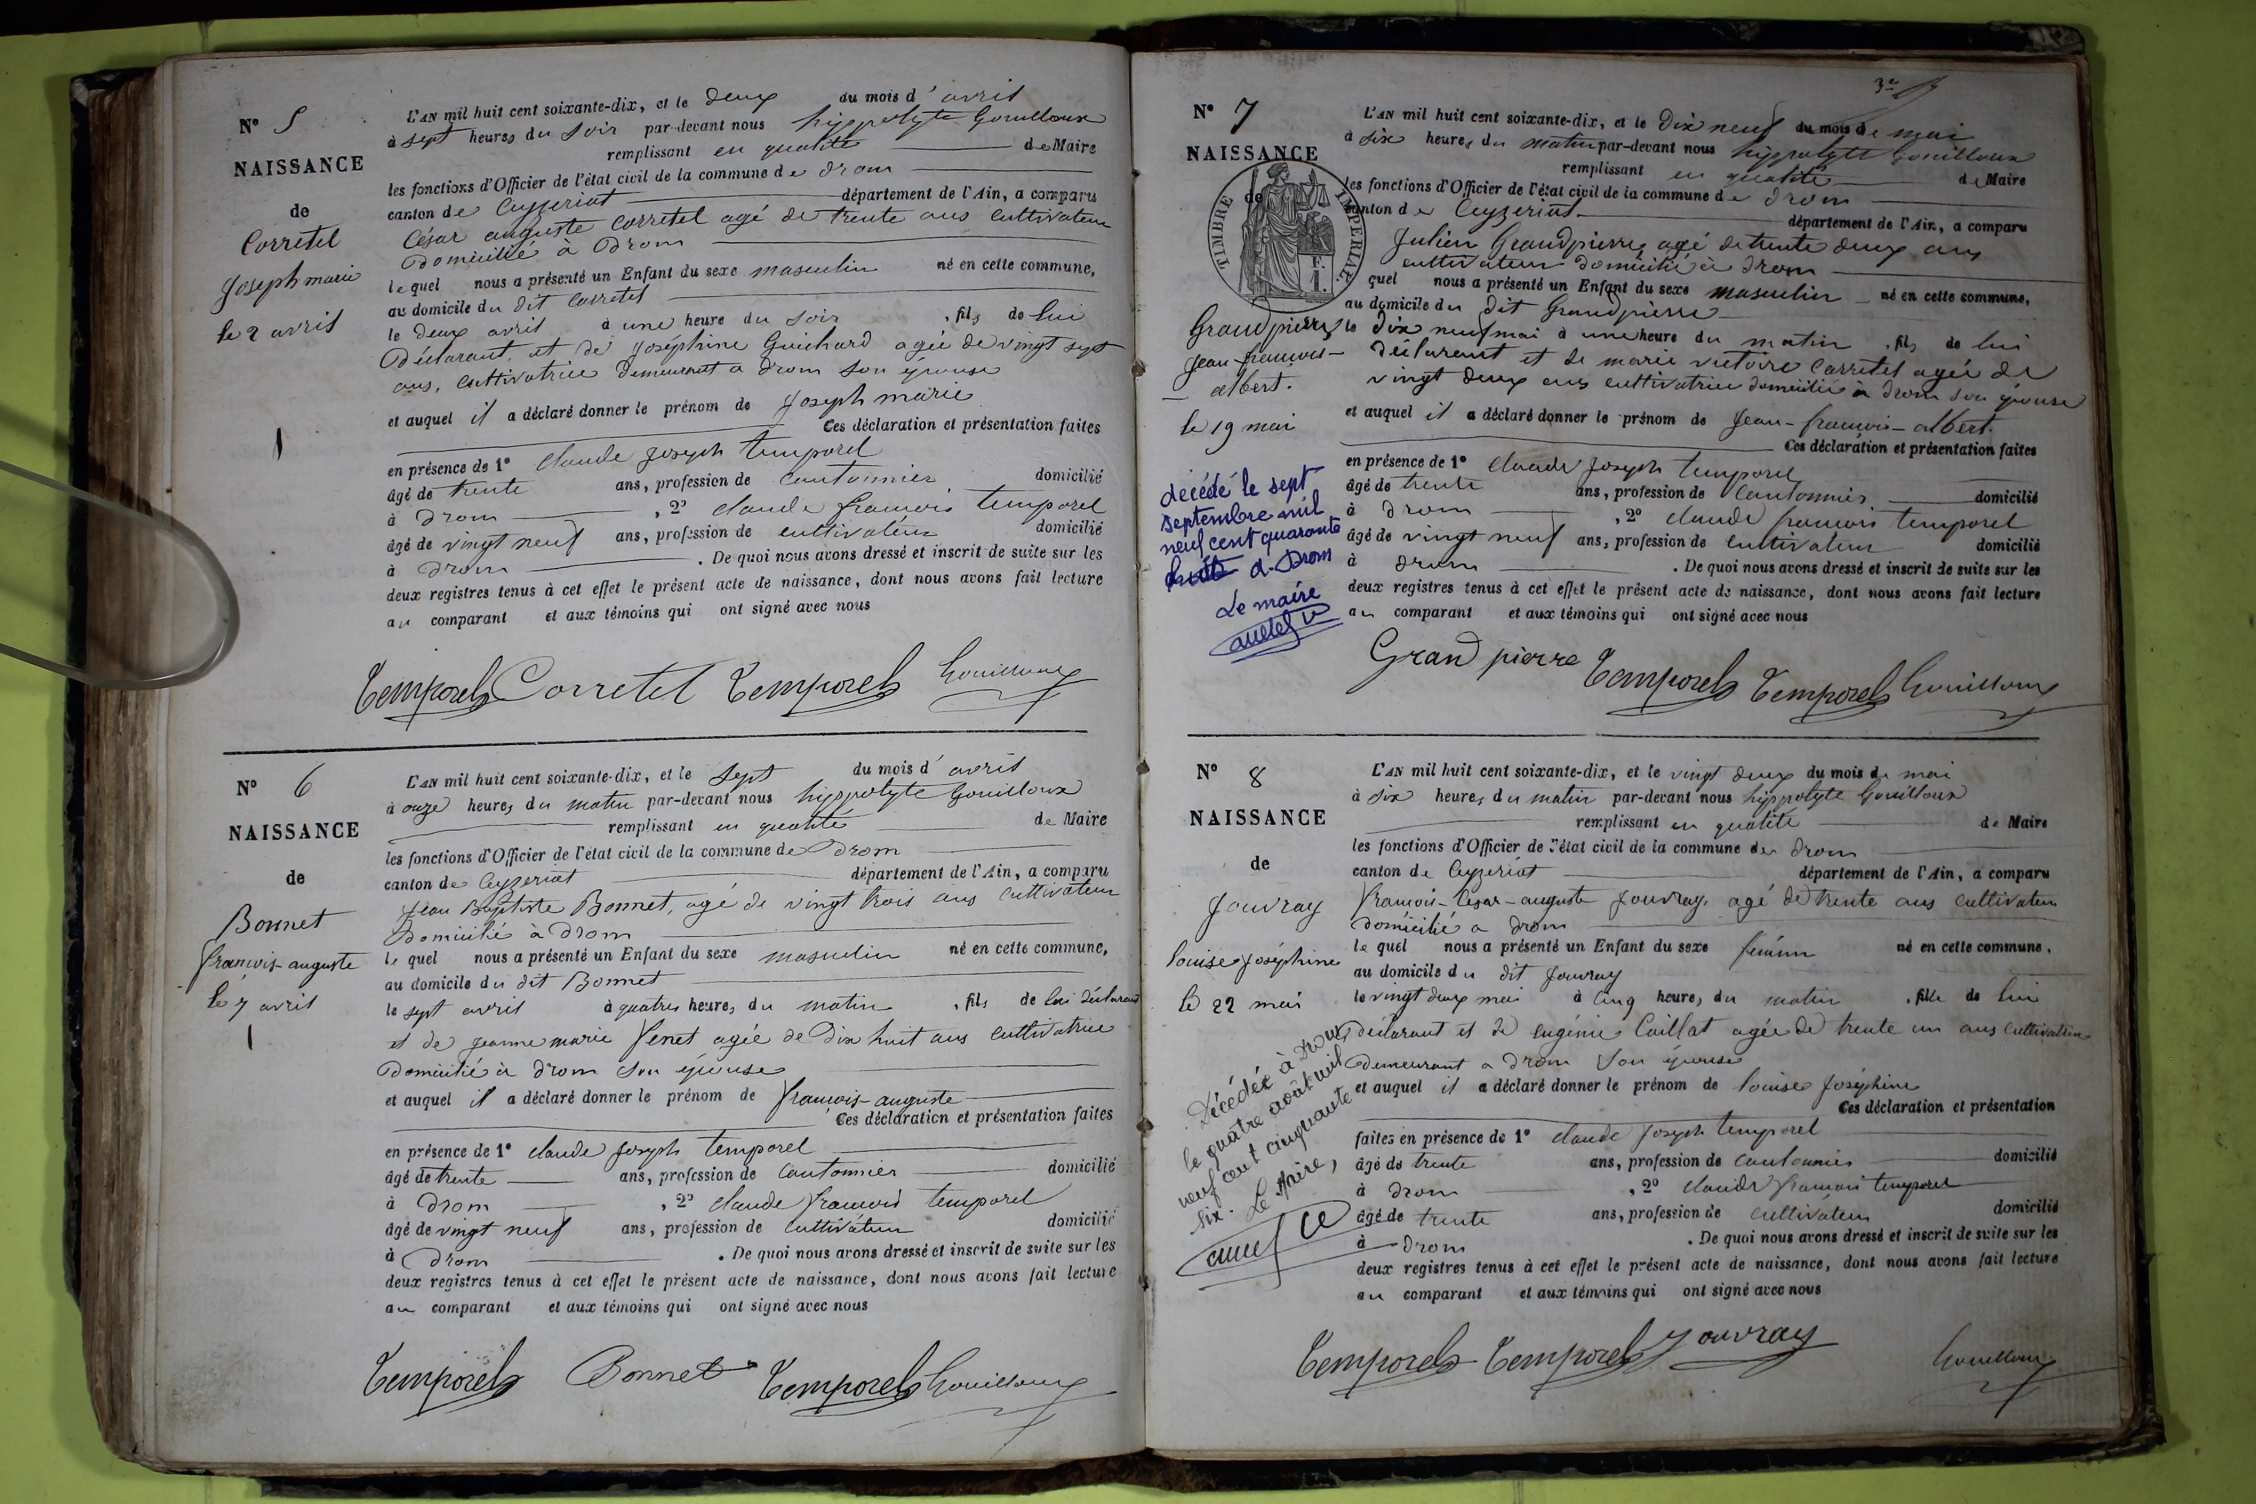 N° 5
NAISSANCE
de
Corretel
Joseph marie
le 2 avril
1
L'AN mil huit cent soixante-dix, et le deux du mois d'avril
à sept heures du soir par-devant nous hyppolyte Gouilloux
remplissant en qualité de Maire
les fonctions d'Officier de l'état civil de la commune de drom
canton de Ceyzeriat département de l'Ain, a comparu
César auguste Corretel agé de trente ans Cultivateur
Domicilié à Drom
lequel nous a présenté un Enfant du sexe masculin né en cette commune,
au domicile du dit Corretel
le Deux avril à une heure du soir, fils de lui
Déclarant, et de Joséphine Guichard agée de vingt sept
ans, Cultivatrice Demeurant a drom son épouse
et auquel il a déclaré donner le prénom de Joseph marie
Ces déclaration et présentation faites
en présence de 1° Claude Joseph temporel
âgé de trente ans, profession de Cantonnier domicilié
à Drom, 2° claude francois temporel
âgé de vingt neuf ans, profession de cultivateur domicilié
à Drom. De quoi nous avons dressé et inscrit de suite sur les
deux registres tenus à cet effet le présent acte de naissance, dont nous avons fait lecture
au comparant et aux témoins qui ont signé avec nous
Temporel Corretel Temporel Gouilloux
N° 6
NAISSANCE
de
Bonnet
francois-auguste
le 7 avril
1
L'AN mil huit cent soixante-dix, et le sept du mois d'avril
à onze heures du matin par-devant nous hyppolyte Gouilloux
remplissant en qualité de Maire
les fonctions d'Officier de l'état civil de la commune de Drom
canton de Ceyzeriat département de l'Ain, a comparu
Jean Baptiste Bonnet, agé de vingt trois ans cultivateur
Domicilié à Drom
lequel nous a présenté un Enfant du sexe masculin né en cette commune,
au domicile du dit Bonnet
le sept avril à quatre heures du matin, fils de lui déclarant
et de Jeanne marie Venet agée de Dix huit ans cultivatrice
Domicilié à drom son épouse
et auquel il a déclaré donner le prénom de francois-auguste
Ces déclaration et présentation faites
en présence de 1° claude Joseph temporel
âgé de trente ans, profession de Cantonnier domicilié
à Drom, 2° claude francois temporel
âgé de vingt neuf ans, profession de cultivateur domicilié
à Drom. De quoi nous avons dressé et inscrit de suite sur les
deux registres tenus à cet effet le présent acte de naissance, dont nous avons fait lecture
au comparant et aux témoins qui ont signé avec nous
Temporel Bonnet Temporel Gouilloux
3e
N° 7
NAISSANCE
de
TIMBRE IMPERIAL
F.
1.
Grandpierre
Jean-francois-
albert.
le 19 mai
décédé le sept
septembre mil
neuf cent quarante
huit a Drom
Le maire
L'AN mil huit cent soixante-dix, et le Dix neuf du mois de mai
à six heures du matin par-devant nous hyppolyte Gouilloux
remplissant en qualité de Maire
les fonctions d'Officier de l'état civil de la commune de drom
canton de Ceyzeriat département de l'Ain, a comparu
Julien Grandpierre, agé de trente deux ans
cultivateur domicilié à Drom
quel nous a présenté un Enfant du sexe masculin né en cette commune,
au domicile du dit Grandpierre
le dix neuf mai à une heure du matin, fils de lui
déclarant et de marie victoire Corretel agée de
vingt deux ans cultivatrice domiciliée à drom son épouse
et auquel il a déclaré donner le prénom de Jean-francois-albert.
Ces déclaration et présentation faites
en présence de 1° Claude Joseph temporel
âgé de trente ans, profession de Cantonnier domicilié
à Drom, 2° claude francois temporel
âgé de vingt neuf ans, profession de cultivateur domicilié
à drom. De quoi nous avons dressé et inscrit de suite sur les
deux registres tenus à cet effet le présent acte de naissance, dont nous avons fait lecture
au comparant et aux témoins qui ont signé avec nous
Grand pierre Temporel Temporel Gouilloux
N° 8
NAISSANCE
de
Jouvray
Louise Joséphine
le 22 mai
Décédée à Drom
le quatre août mil
neuf cent cinquante
six. Le Maire,
L'AN mil huit cent soixante-dix, et le vingt deux du mois de mai
à six heures du matin par-devant nous hyppolyte Gouilloux
remplissant en qualité de Maire
les fonctions d'Officier de l'état civil de la commune de drom
canton de Ceyzériat département de l'Ain, a comparu
francois-César-auguste Jouvray, agé de trente ans cultivateur
Domicilié a drom
lequel nous a présenté un Enfant du sexe féminin né en cette commune,
au domicile du dit Jouvray
le vingt deux mai à Cinq heures du matin, fille de lui
déclarant et de eugénie Caillat agée de trente un ans cultivatrice
Demeurant a Drom son épouse
et auquel il a déclaré donner le prénom de Louise Joséphine
Ces déclaration et présentation
faites en présence de 1° claude Joseph temporel
âgé de trente ans, profession de cantonnier domicilié
à drom, 2° claude francois temporel
âgé de trente ans, profession de cultivateur domicilié
à Drom. De quoi nous avons dressé et inscrit de suite sur les
deux registres tenus à cet effet le présent acte de naissance, dont nous avons fait lecture
au comparant et aux témoins qui ont signé avec nous
Temporel Temporel Jouvray Gouilloux